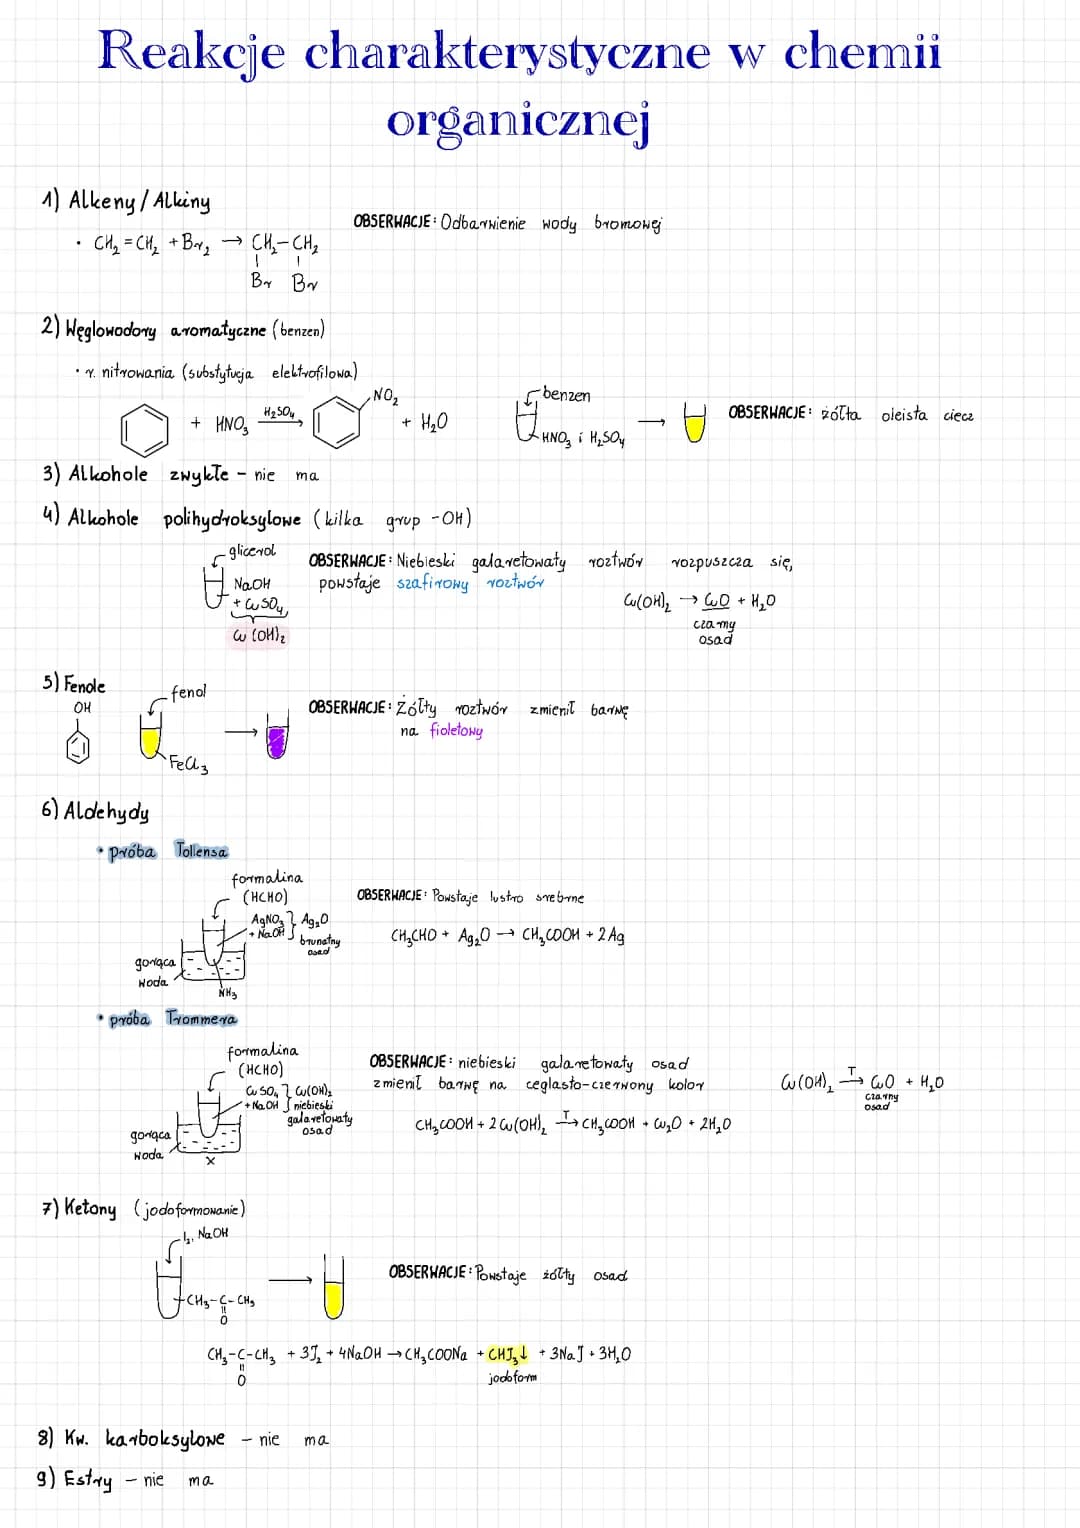 Reakcje charakterystyczne w chemii
organicznej
1) Alkeny / Alkiny
OBSERWACJE: Odbarwienie wody bromowej
• CH₂ = CH₂ + Br₂ → CH₂ – CH₂
Br Br
2) Węglowodory aromatyczne (benzen)
• r. nitrowania (substytucja elektrofilowa)
+ HNO₃ H₂SO₄ → NO₂ + H₂O
benzen
HNO₃ i H₂SO₄
OBSERWACJE: żółta oleista ciecz
3) Alkohole zwykłe – nie ma
4) Alkohole polihydroksylowe (kilka grup -OH)
glicerol
NaOH
+ CuSO₄
Cu(OH)₂
OBSERWACJE: Niebieski galaretowaty roztwór rozpuszcza się,
powstaje szafirowy roztwór
Cu(OH)₂ → CuO + H₂O
czarny
osad
5) Fenole
OH
fenol
FeCl₃
OBSERWACJE: Żółty roztwór zmienił barwę
na fioletowy
6) Aldehydy
• próba Tollensa
formalina
(HCHO)
AgNO₃ } Ag₂O
+ NaOH
brunatny
osad
gorąca
woda
NH₃
OBSERWACJE: Powstaje lustro srebrne
CH₃CHO + Ag₂O → CH₃COOH + 2Ag
• próba Trommera
formalina
(HCHO)
CuSO₄ } Cu(OH)₂
+ NaOH niebieski
galaretowaty
osad
gorąca
woda
x
OBSERWACJE: niebieski galaretowaty osad
zmienił barwę na ceglasto-czerwony kolor
CH₃COOH + 2Cu(OH)₂ T→ CH₃COOH + Cu₂O + 2H₂O
Cu(OH)₂ T→ CuO + H₂O
czarny
osad
7) Ketony (jodoformowanie)
I₂, NaOH
CH₃ – C – CH₃
O
OBSERWACJE: Powstaje żółty osad
CH₃ – C – CH₃ + 3J₂ + 4NaOH → CH₃COONa + CHJ₃↓ + 3NaJ + 3H₂O
O
jodoform
8) Kw. karboksylowe – nie ma
9) Estry – nie ma